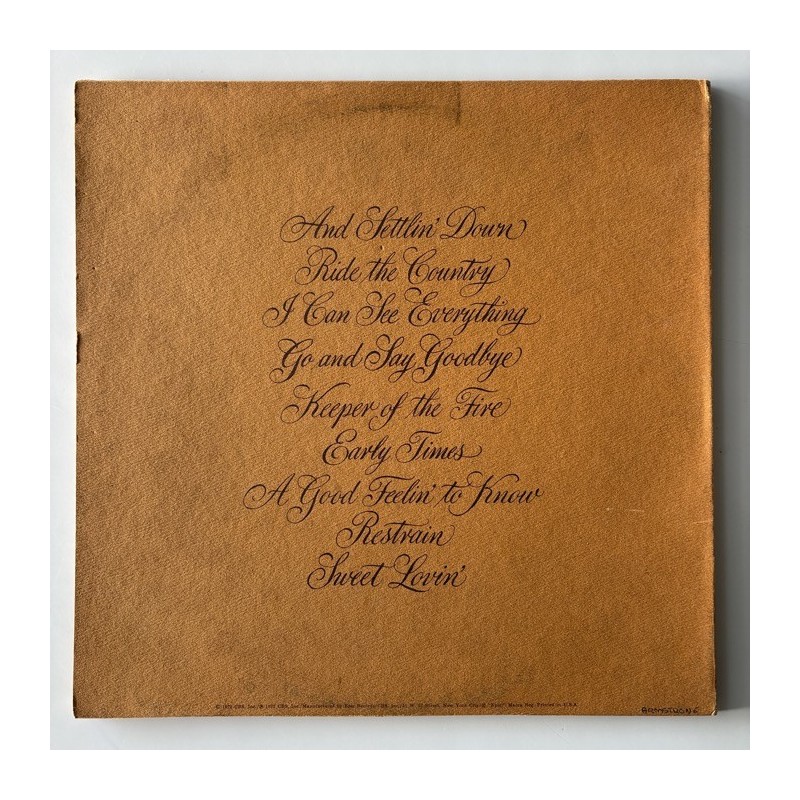 And Settlin' Down
Ride the Country
I Can See Everything
Go and Say Goodbye
Keeper of the Fire
Early Times
A Good Feelin' to Know
Restrain
Sweet Lovin'
© 1972 CBS, Inc./℗ 1972 CBS, Inc./Manufactured by Epic Records/CBS, Inc./51 W. 52 Street, New York City/® "Epic," Marca Reg. Printed in U.S.A.
ARMSTRONG